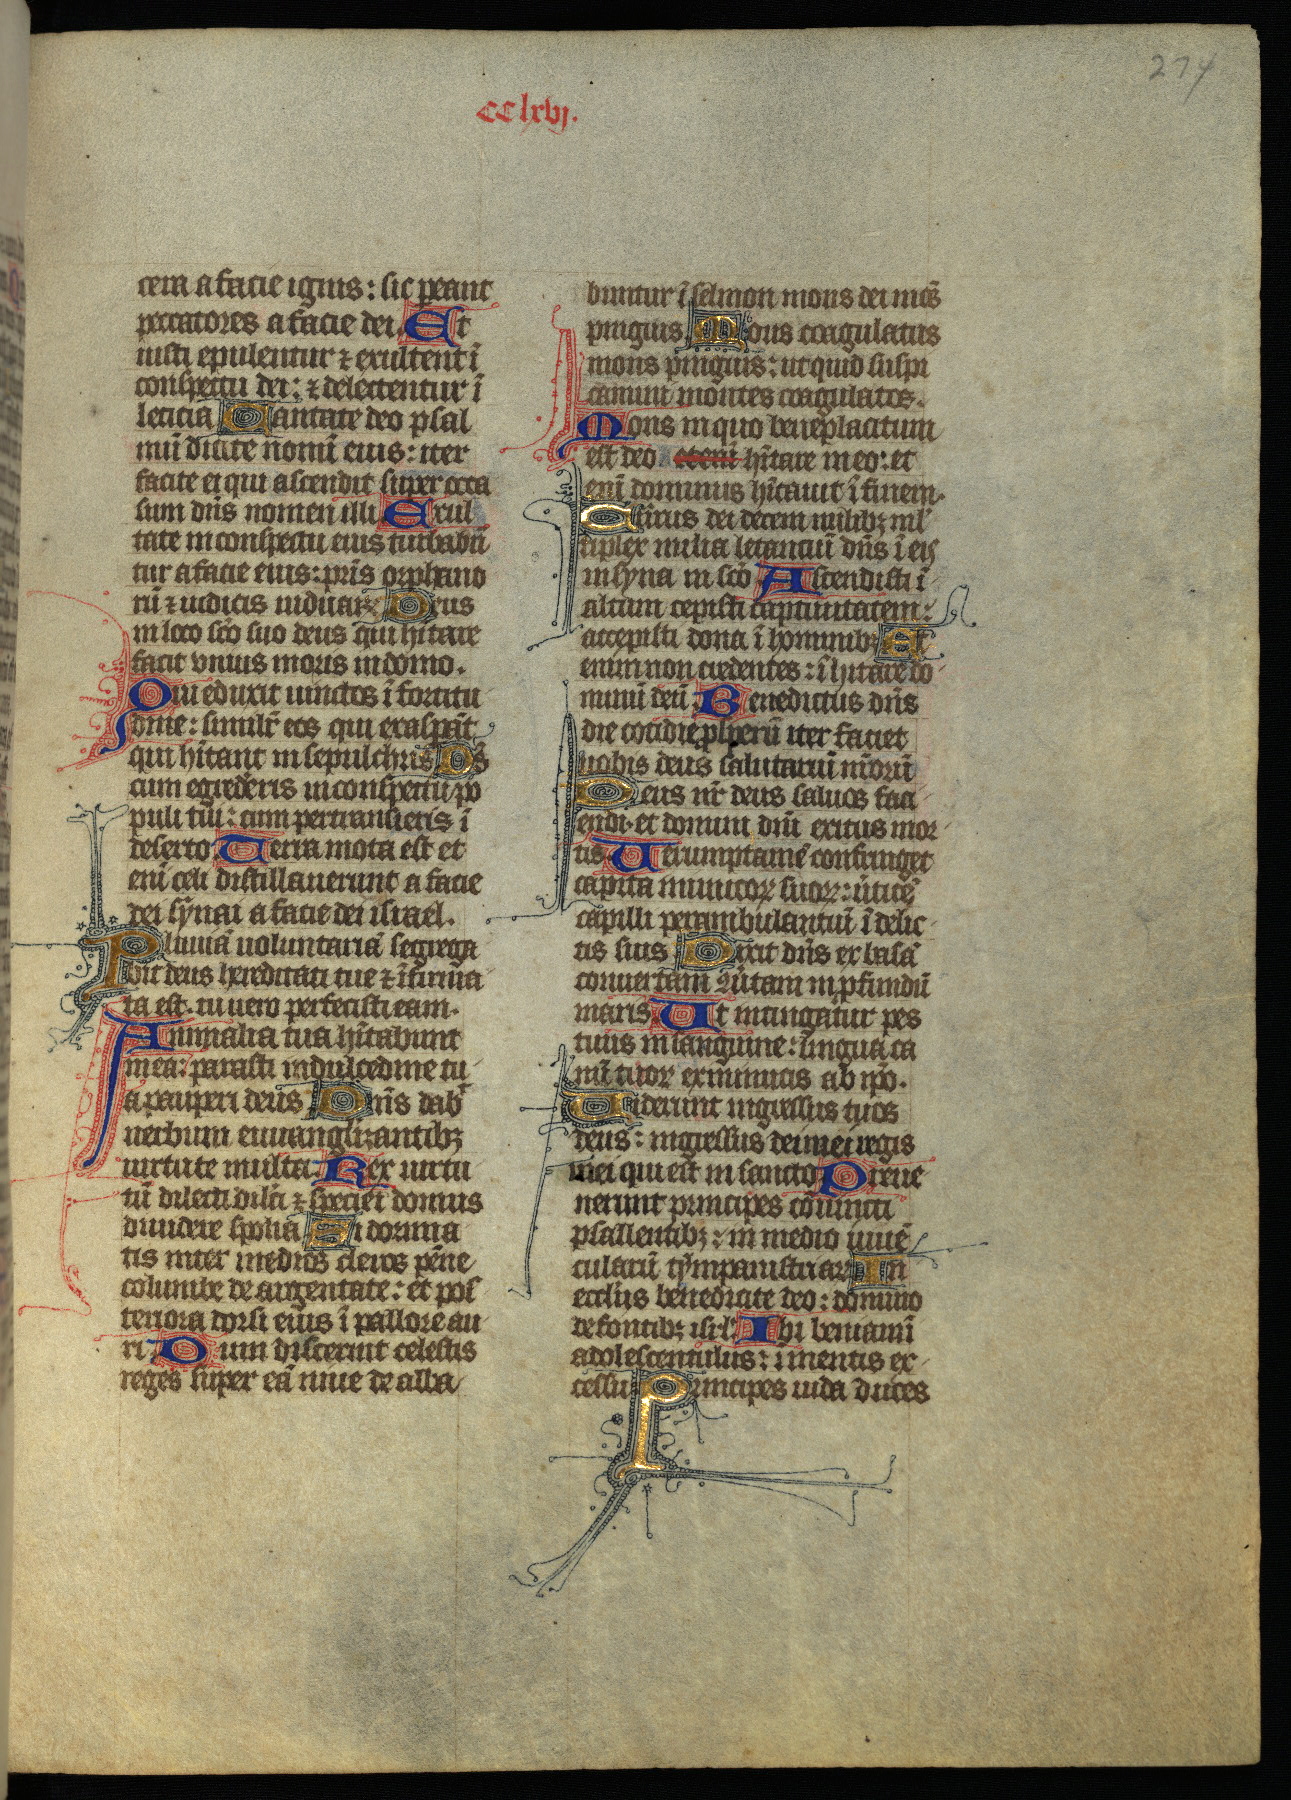 274
cclxvj.
cera a facie ignis: sic peant
peccatores a facie dei. Et
iusti epulentur ⁊ exultent ĩ
conspectu dei: ⁊ delectentur ĩ
leticia Cantate deo psal
mũ dicite nomĩ eius: iter
facite ei qui ascendit super occa
sum dñs nomen illi Exul
tate in conspectu eius turbabũ
tur a facie eius: pris orphano
rũ ⁊ iudicis uiduar Deus
in loco sco suo deus qui hitare
facit vnius moris in domo.
Qui eduxit uinctos ĩ fortitu
dine: similr eos qui exasperãt
qui hitant in sepulchris Ds
cum egredereris in conspectu po
puli tui: cum pertransieris ĩ
deserto Terra mota est et
eni celi distillauerunt a facie
dei synai a facie dei israel.
Pluuiã uoluntariã segrega
bit deus hereditati tue ⁊ ĩfirma
ta est. tu uero perfecisti eam.
Animalia tua hitabunt
in ea: parasti in dulcedine tu
a pauperi deus Dñs dab
uerbum euuanglizantibꝫ
uirtute multa. Rex uirtu
tũ dilecti dilci ⁊ speciei domus
diuidere spolia Si dormia
tis inter medios cleros penne
columbe de argentate: et pos
teriora dorsi eius ĩ pallore au
ri Dum discernit celestis
reges super eã niue de alba
buntur ĩ selmon mons dei mõs
pinguis Mons coagulatus
mons pinguis: ut quid suspi
camini montes coagulatos.
Mons in quo beneplacitum
est deo eteni hitare in eo: et
eni dominus hitauit ĩ finem.
Currus dei decem milibꝫ ml
tiplex milia letanciũ dñs ĩ eis
in syna in sco Ascendisti ĩ
altum cepisti captiuitatem:
accepisti dona ĩ hominibꝫ Et
enim non credentes: ĩhitare do
minũ deũ Benedictus dñs
die cotidie prosperũ iter faciet
nobis deus salutariũ nrorũ
Deus nr deus saluos faci
endi. et domini dni exitus mor
tis Uerumptamẽ confringet
capita inimicoꝝ suoꝝ: uticẽ
capilli perambulantiũ ĩ delic
tis suis Dixit dñs ex basã
conuertam: 9uertam in pfundũ
maris. Ut intingatur pes
tuus in sanguine: lingua ca
nũ tuoꝝ ex inimicis ab ipo.
Uiderunt ingressus tuos
deus: ingressus dei mei regis
mei qui est in sancto Preue
nerunt principes cõiuncti
psallentibꝫ: in medio iuuẽ
cularũ tympanistriar In
ecclijs benedicite deo: domino
de fontibꝫ isrl. Ibi beniamĩ
adolescentulus: ĩ mentis ex
cessu Principes iuda duces